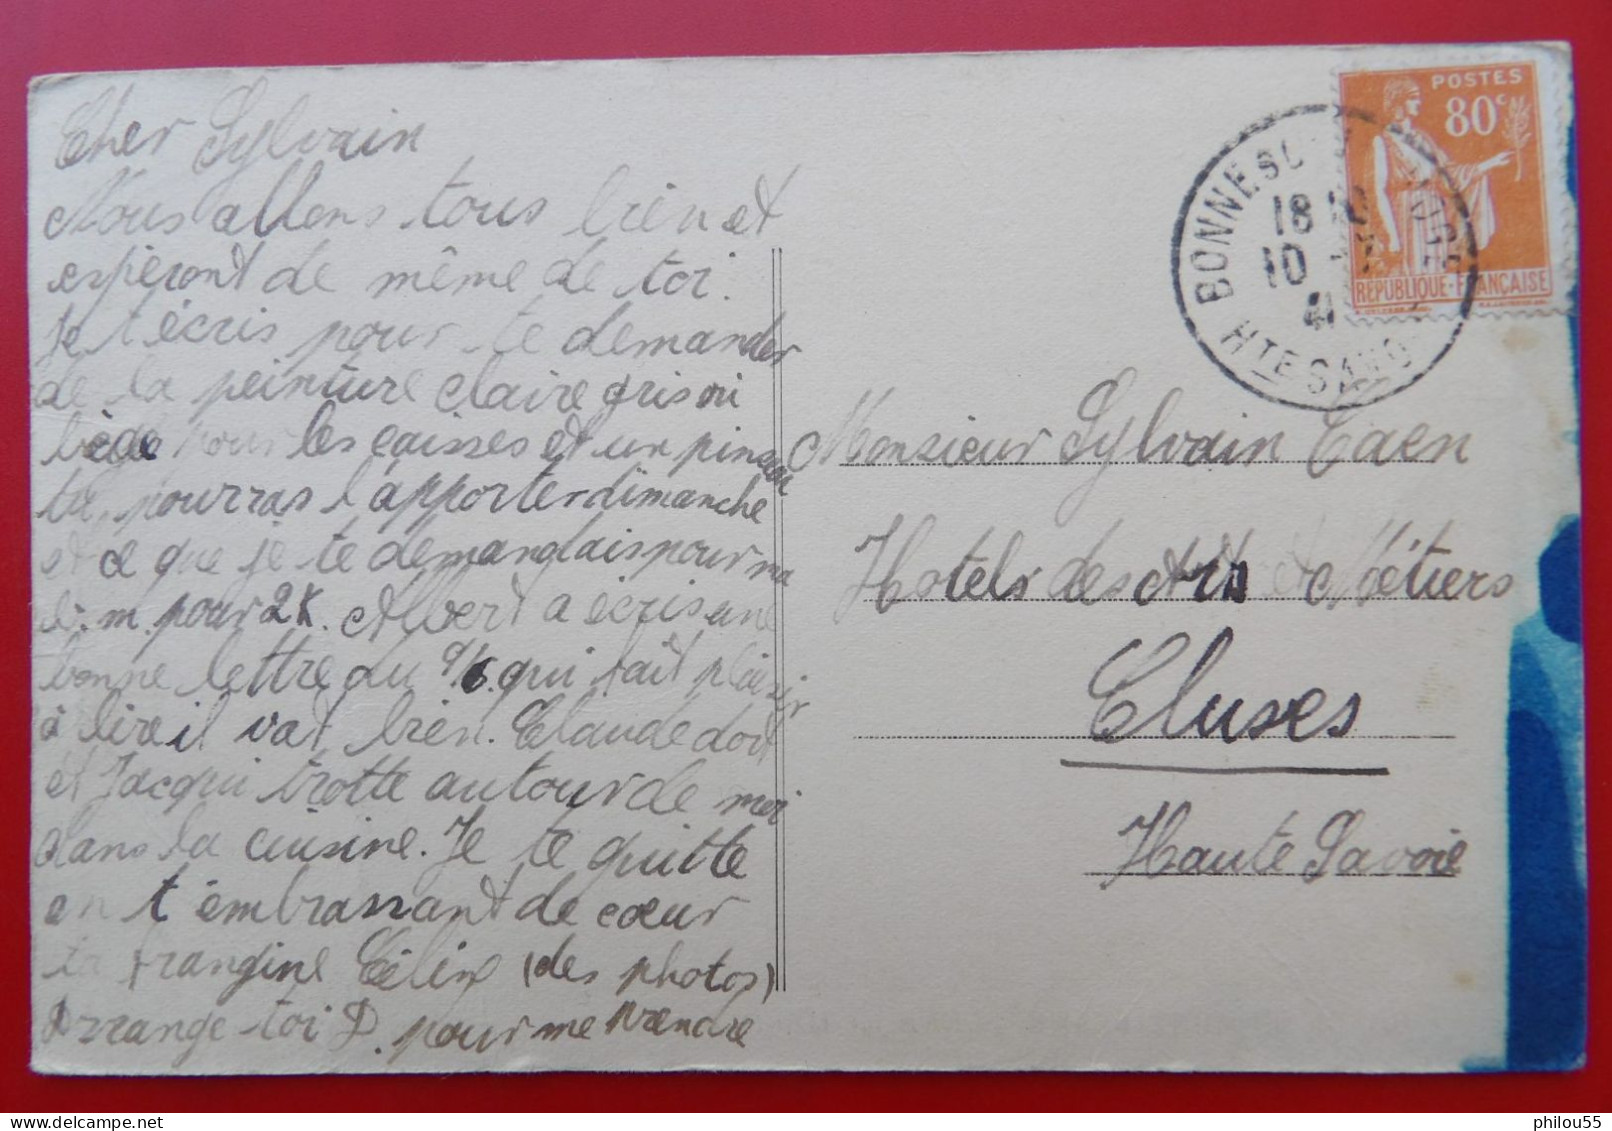 Cher Sylvain
Nous allons tous bien et
esperont de même de toi.
Je t'écris pour te demander
de la peinture claire gris ou
pour les caisses et un pinseau
tu pourras l'apporter dimanche
et ce que je te demandais pour ma
pour 2K. Albert a écris une
bonne lettre du 9/6 qui fait plaisir
à lire il vat bien. Claude dort
et Jacqui trotte autour de moi
dans la cuisine. Je te quitte
en t'embrassant de cœur
ta frangine (des photos)
Arrange-toi D. pour me prendre
POSTES
80c
REPUBLIQUE-FRANÇAISE
BONNE
18
10
41
HTE SAVO
Monsieur Sylvain Caen
Hotels des Arts et Métiers
Cluses
Haute Savoie
philou55